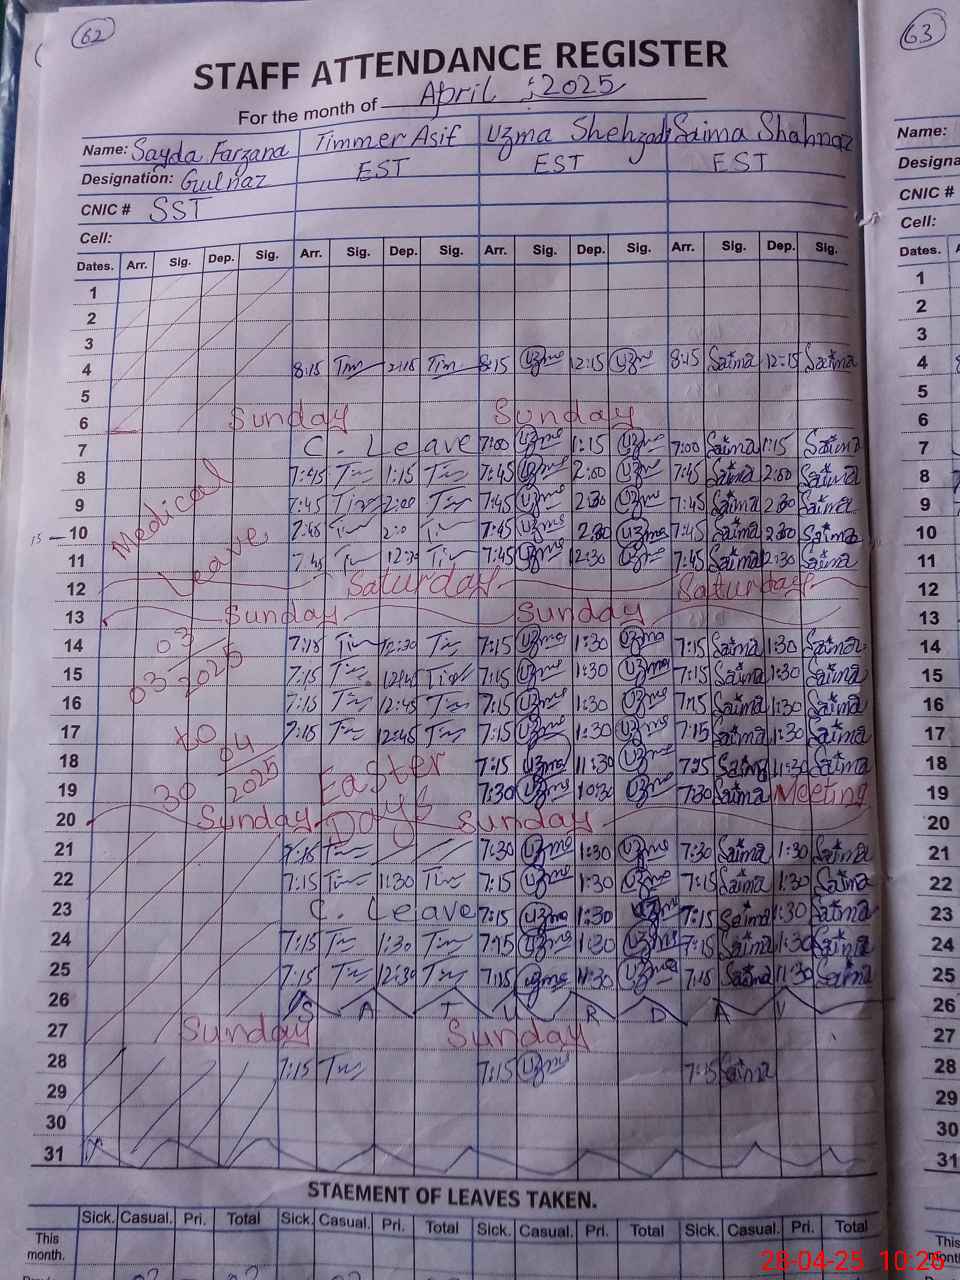 62
63
STAFF ATTENDANCE REGISTER
For the month of April ; 2025
Name: Sayda Farzana Timmer Asif Uzma Shehzadi Saima Shahnaz
Name:
Designation: Gulnaz EST EST EST
CNIC # SST
CNIC #
Cell:
Cell:
Dates. Arr. Sig. Dep. Sig. Arr. Sig. Dep. Sig. Arr. Sig. Dep. Sig. Arr. Sig. Dep. Sig.
Dates.
1 1
2 2
3 3
4 8:15 Tim 12:15 Tim 8:15 Uzma 12:15 Uzma 8:45 Saima 12:15 Saima 4
5 5
6 Sunday Sunday 6
7 C. Leave 7:00 Uzma 1:15 Uzma 7:00 Saima 1:15 Saima 7
8 Medical 7:45 Tim 1:15 Tim 7:45 Uzma 2:00 Uzma 7:45 Saima 2:00 Saima 8
9 7:45 Tim 2:00 Tim 7:45 Uzma Uzma 7:45 Saima Saima 9
10 7:45 Tim Tim 7:45 Uzma Uzma 7:45 Saima Saima 10
11 Leave 7:45 Tim 12:30 Tim 7:45 Uzma 12:30 Uzma 7:45 Saima 12:30 Saima 11
12 Saturday Saturday 12
13 Sunday Sunday 13
14 03 7:15 Tim 12:30 Tim 7:15 Uzma 1:30 Uzma 7:15 Saima 1:30 Saima 14
15 03 2025 7:15 Tim 12:45 Tim 7:15 Uzma 1:30 Uzma 7:15 Saima 1:30 Saima 15
16 7:15 Tim 12:45 Tim 7:15 Uzma 1:30 Uzma 7:15 Saima 1:30 Saima 16
17 to 7:15 Tim 12:45 Tim 7:15 Uzma 1:30 Uzma 7:15 Saima 1:30 Saima 17
18 04 Easter 7:15 Uzma 11:30 Uzma 7:15 Saima 11:30 Saima 18
19 30 2025 7:30 Uzma 10:30 Uzma 7:30 Saima Meeting 19
20 Sunday Day Sunday 20
21 7:15 Tim 7:30 Uzma 1:30 Uzma 7:30 Saima 1:30 Saima 21
22 7:15 Tim 1:30 Tim 7:15 Uzma 1:30 Uzma 7:15 Saima 1:30 Saima 22
23 C. Leave 7:15 Uzma 1:30 Uzma 7:15 Saima 1:30 Saima 23
24 7:15 Tim 1:30 Tim 7:15 Uzma 1:30 Uzma 7:15 Saima 1:30 Saima 24
25 7:15 Tim 12:30 Tim 7:15 Uzma 11:30 Uzma 7:15 Saima 11:30 Saima 25
26 S A T U R D A Y 26
27 Sunday Sunday 27
28 7:15 Tim 7:15 Uzma 7:15 Saima 28
29 29
30 30
31 31
STAEMENT OF LEAVES TAKEN.
Sick. Casual. Pri. Total Sick. Casual. Pri. Total Sick. Casual. Pri. Total Sick. Casual. Pri. Total
This
month.
28-04-25 10:26